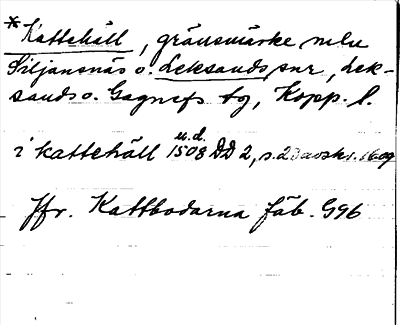 *Kattehäll, gränsmärke mln
Siljansnäs o. Leksands snr, Lek-
sands o. Gagnefs tg, Kopp. l.
u.d.
i kattehäll 1508 DD 2, s. 23 avskr. 1609
Jfr. Kattbodarna fäb. G96